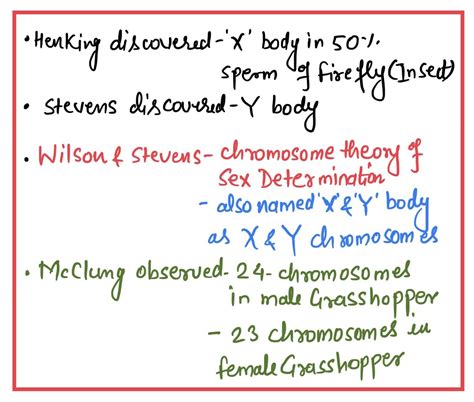 • Henking discovered - 'X' body in 50%
sperm of firefly (Insect)
• Stevens discovered - Y body
• Wilson & Stevens - chromosome theory of
Sex Determination
- also named 'X' & 'Y' body
as X & Y chromosomes
• McClung observed - 24 - chromosomes
in male Grasshopper
- 23 chromosomes in
female Grasshopper